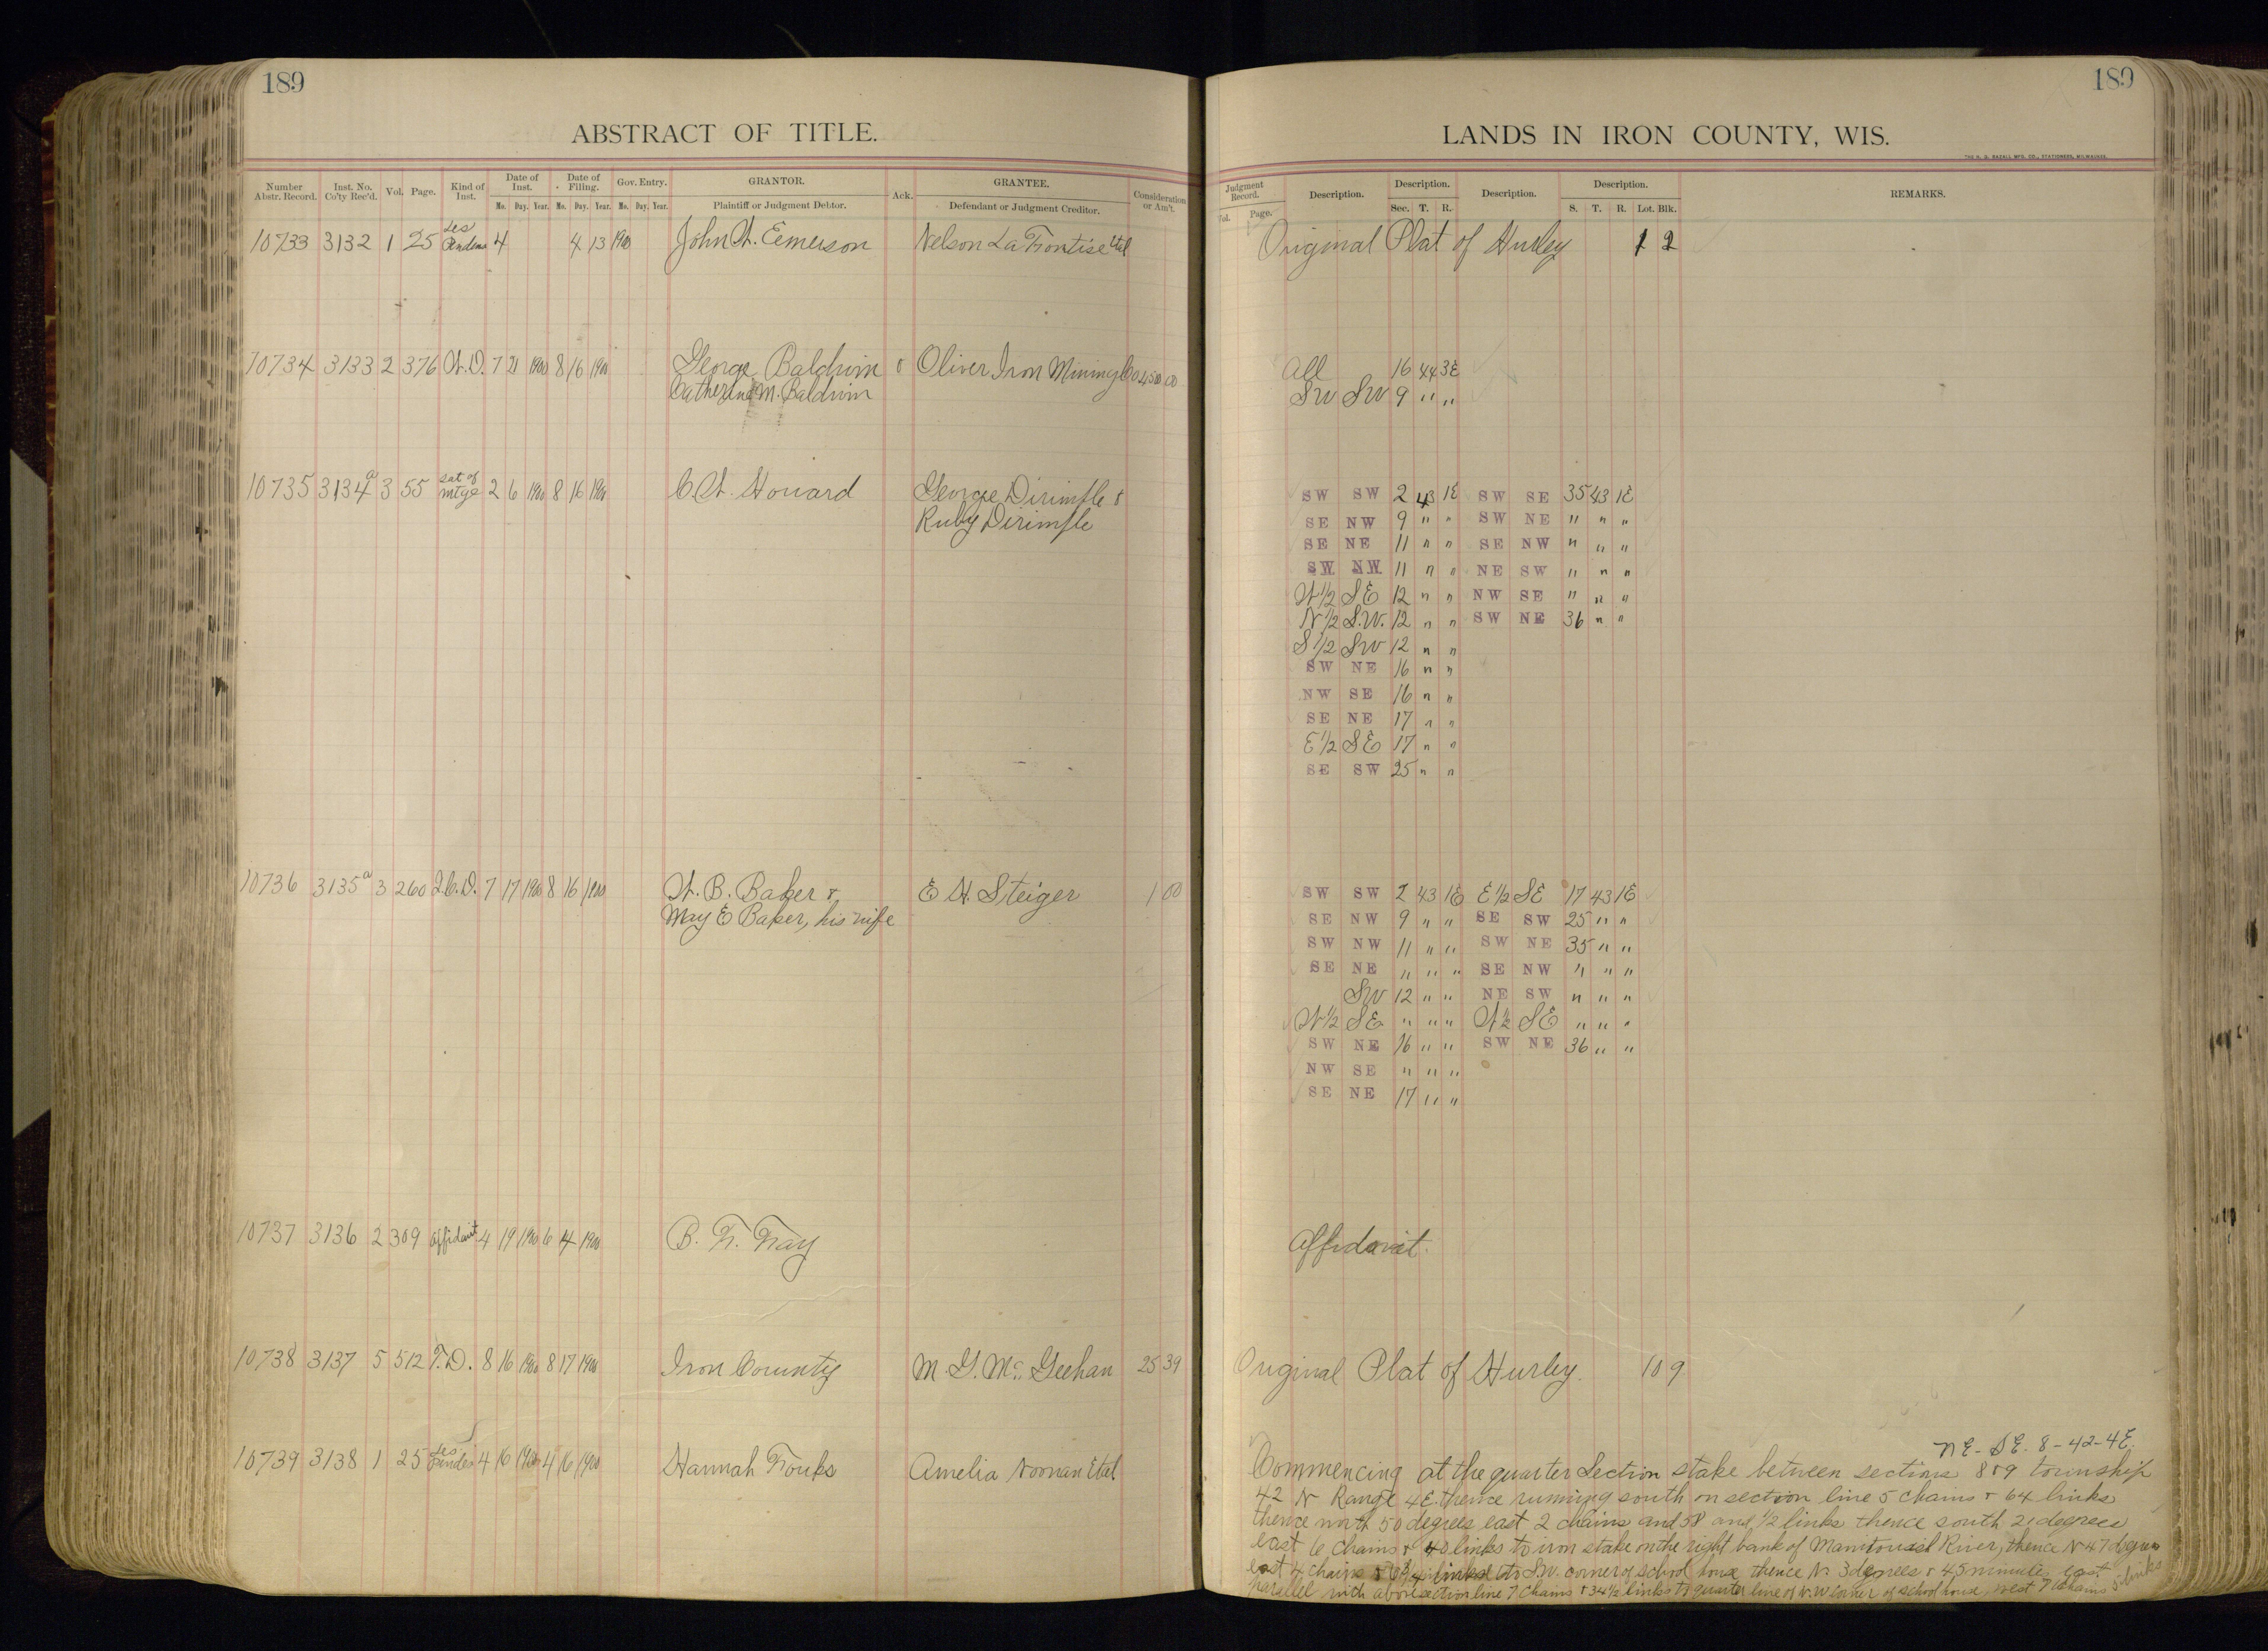 189
ABSTRACT OF TITLE.
Number Abstr. Record. Inst. No. Co'ty Rec'd. Vol. Page. Kind of Inst. Date of Inst. Date of Filing. Gov. Entry. GRANTOR. Ack. GRANTEE. Consideration or Am't.
Mo. Day. Year. Mo. Day. Year. Mo. Day. Year. Plaintiff or Judgment Debtor. Defendant or Judgment Creditor.
10733 3132 1 25 Les Pendens 4 4 13 1900 John W. Eemerson Nelson La Frontise Etal
10734 3133 2 376 W.D. 7 21 1900 8 16 1900 George Baldwin & Oliver Iron Mining Co
Catherine M. Baldwin
10735 3134a 3 55 Sat of Mtge 2 6 1900 8 16 1900 C. W. Howard George Dirimple &
Ruby Dirimple
10736 3135a 3 260 Q.C.D. 7 17 1900 8 16 1900 W. B. Baker & E W. Steiger 1 00
May E Baker, his wife
10737 3136 2 309 Affidavit 4 19 1900 6 4 1900 B. F. Fay
10738 3137 5 512 T.D. 8 16 1900 8 17 1900 Iron County M. G. Mc Geehan 25 39
10739 3138 1 25 Les Penden 4 16 1900 4 16 1900 Hannah Fouks Amelia Noonan Etal
189
LANDS IN IRON COUNTY, WIS.
Judgment Record. Description. Description. Description. Description. REMARKS.
Vol. Page. Sec. T. R. S. T. R. Lot. Blk.
Original Plat of Hurley 1 2
All 16 44 3E
SW SW 9 " "
SW SW 2 43 1E SW SE 35 43 1E
SE NW 9 " " SW NE " " "
SE NE 11 " " SE NW " " "
SW NW 11 " " NE SW " " "
W 1/2 SE 12 " " NW SE " " "
N 1/2 S.W. 12 " " SW NE 36 " "
S 1/2 SW 12 " "
SW NE 16 " "
NW SE 16 " "
SE NE 17 " "
E 1/2 SE 17 " "
SE SW 25 " "
SW SW 2 43 1E E 1/2 SE 17 43 1E
SE NW 9 " " SE SW 25 " "
SW NW 11 " " SW NE 35 " "
SE NE " " " SE NW " " "
SW 12 " " NE SW " " "
W 1/2 SE " " " W 1/2 SE " " "
SW NE 16 " " SW NE 36 " "
NW SE " " "
SE NE 17 " "
Affidavit.
Original Plat of Hurley. 10 9
NE - SE. 8-42-4E.
Commencing at the quarter Section stake between sections 8 & 9 township
42 N Range 4E. thence running south on section line 5 chains & 64 links
thence north 50 degrees east 2 chains and 58 and 1/2 links thence south 21 degrees
east 6 chains & 40 links to iron stake on the right bank of Manitowish River, thence N 47 degrees
east 4 chains links to S.W. corner of school house thence N. 3 degrees & 45 minutes east
parallel with above section line 7 chains & 34 1/2 links to quarter line of N.W corner of school house, west 7 chains 5 links